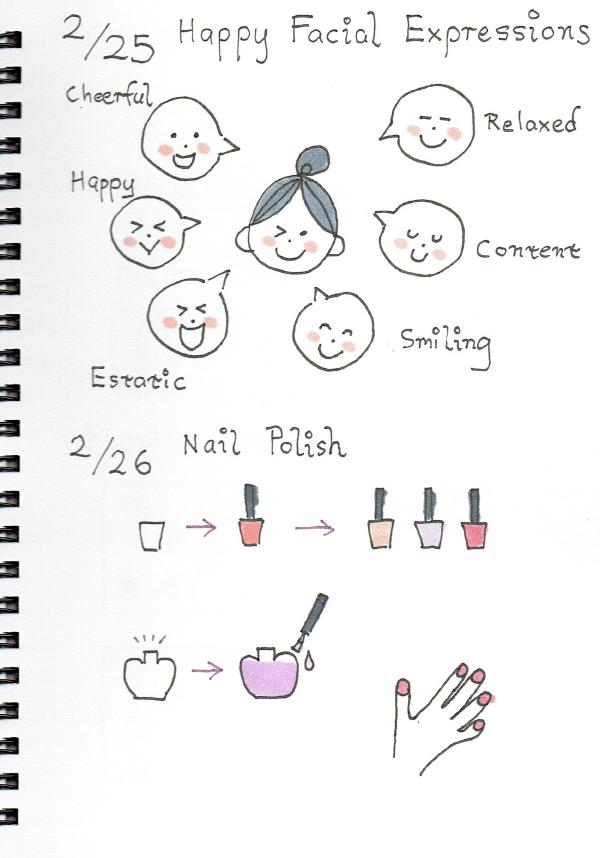 2/25 Happy Facial Expressions
Cheerful
Relaxed
Happy
Content
Smiling
Estatic
2/26 Nail Polish